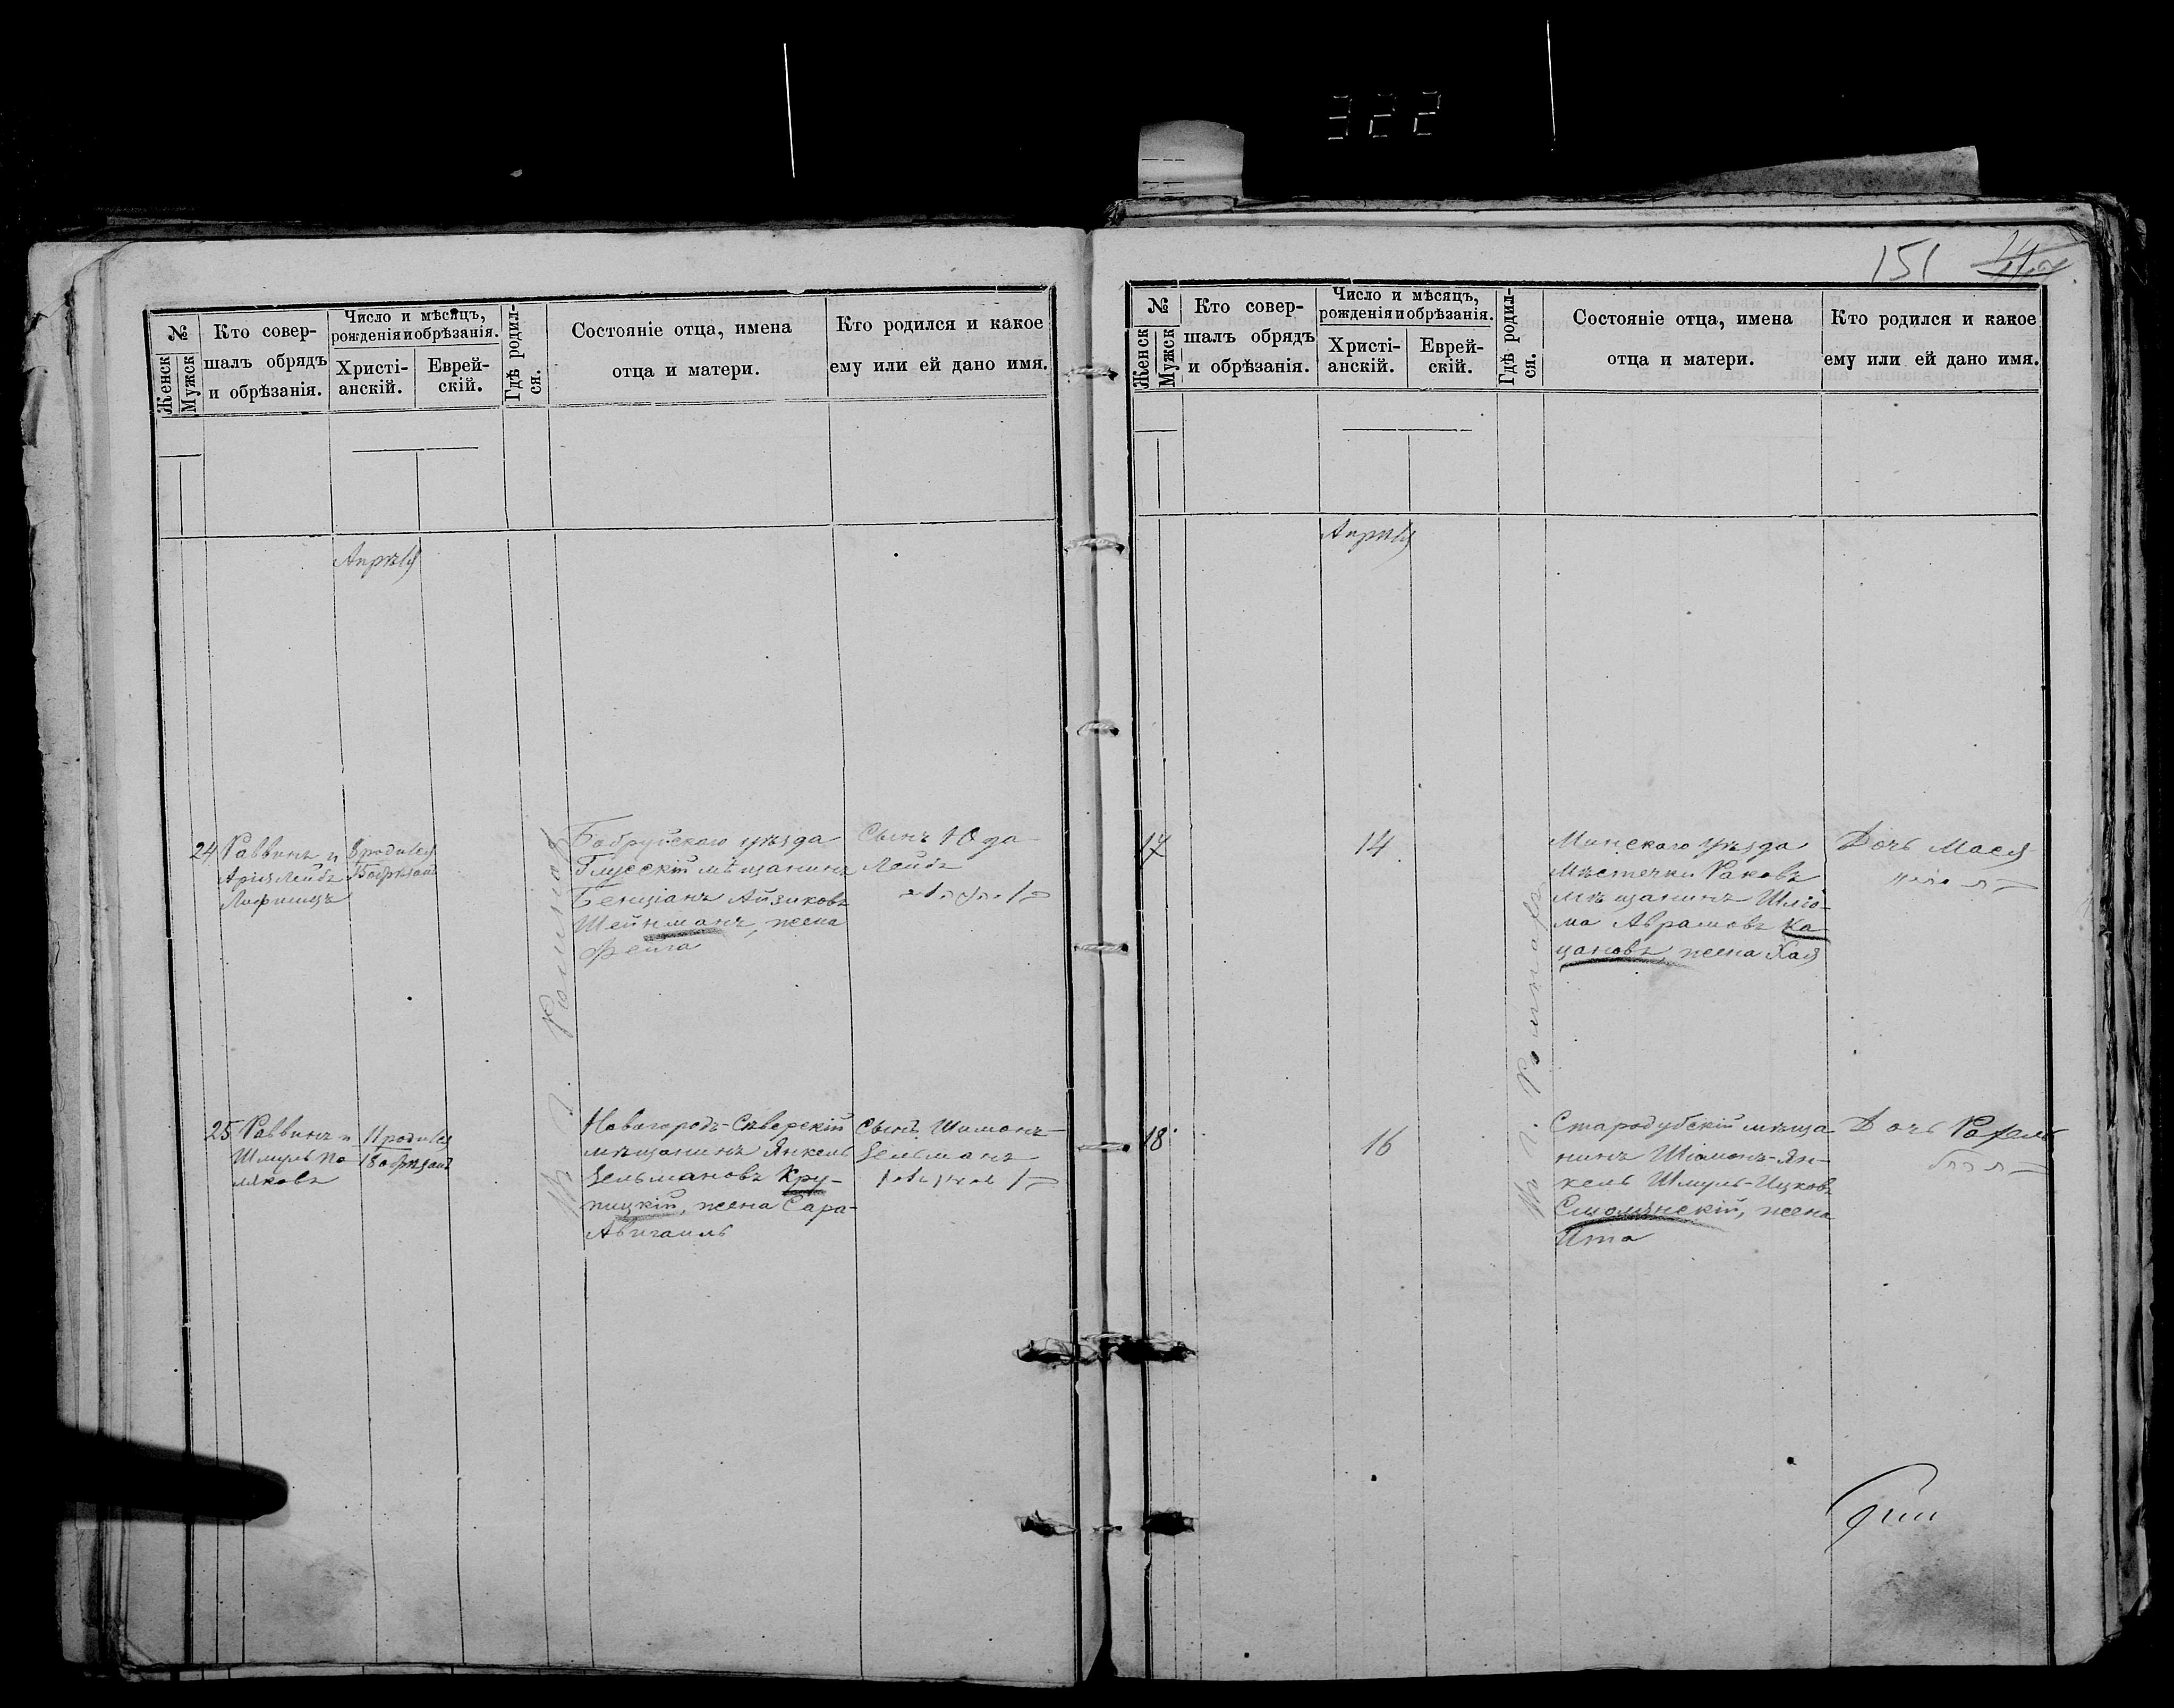 322
№
Женск
Мужск
Кто совер-
шалъ обрядъ
и обрѣзанія.
Число и мѣсяцъ,
рожденія и обрѣзанія.
Христі-
анскій.
Еврей-
скій.
Гдѣ родил-
ся.
Состояніе отца, имена
отца и матери.
Кто родился и какое
ему или ей дано имя.
Апрѣля
24
Раввинъ и
Арія Лейбъ
Лифшицъ
8 родился
15 обрѣзанъ
Бобруйского уѣзда
Глусскій мѣщанинъ
Бенціанъ Айзиковъ
Шейнманъ, жена
Фейга
Сынъ Юда
Лейбъ
25
Раввинъ и
Шмуль По
ляковъ
11 родился
18 обрѣзанъ
Новгородъ-Сѣверскій
мѣщанинъ Янкель
Зельмановъ Кру-
пицкій, жена Сара-
Авигаиль
Сынъ Шимонъ-
Зельманъ
въ г. Ромнахъ
151
№
Женск
Мужск
Кто совер-
шалъ обрядъ
и обрѣзанія.
Число и мѣсяцъ,
рожденія и обрѣзанія.
Христі-
анскій.
Еврей-
скій.
Гдѣ родил-
ся.
Состояніе отца, имена
отца и матери.
Кто родился и какое
ему или ей дано имя.
Апрѣля
17
14
Минского уѣзда
Мѣстечки Раковъ
мѣщанинъ Шліо-
ма Абрамовъ Ка-
цановъ, жена Хая
Дочь Мася
18
16
Стародубскій мѣща-
нинъ Шіомонъ-Ян-
кель Шмуль-Ицковъ
Смолянскій, жена
Ита
Дочь Рахель
въ г. Ромнахъ